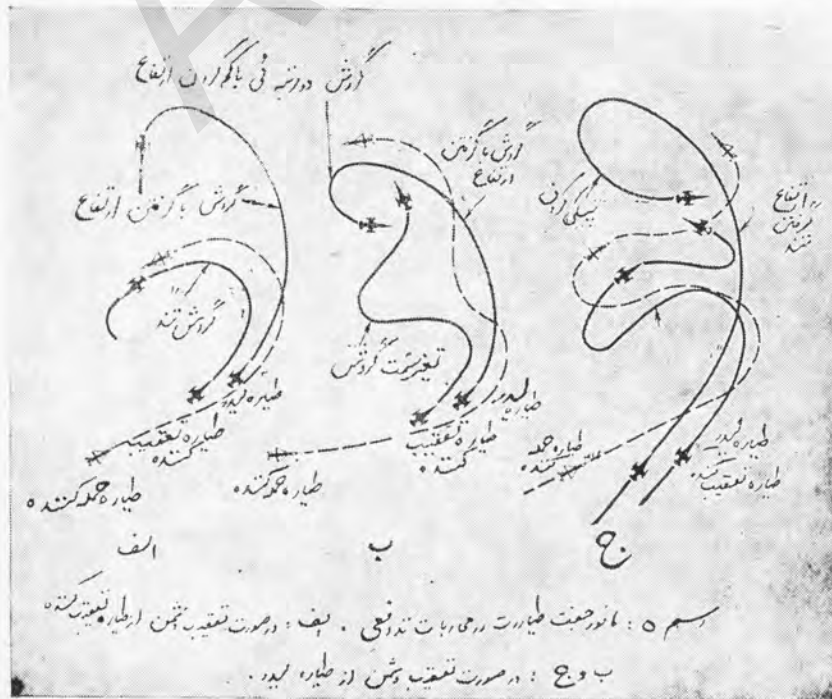 گردش دو رتبه ئی با کم کردن ارتفاع
گردش با گرفتن ارتفاع
گردش تند
طیاره لیدر
طیاره تعقیب
کننده
طیاره حمله کننده
الف
گردش با گرفتن
ارتفاع
تغیر سمت گردش
طیاره لیدر
طیاره تعقیب
کننده
طیاره حمله کننده
ب
ارتفاع
گرفتن
تند
طیاره لیدر
طیاره تعقیب کننده
طیاره حمله
کننده
ج
رسم ۵ : مانور جفت طیارات در محاربات تدافعی . الف : در صورت تعقیب دشمن از طیاره تعقیب کننده
ب و ج : در صورت تعقیب دشمن از طیاره لیدر .